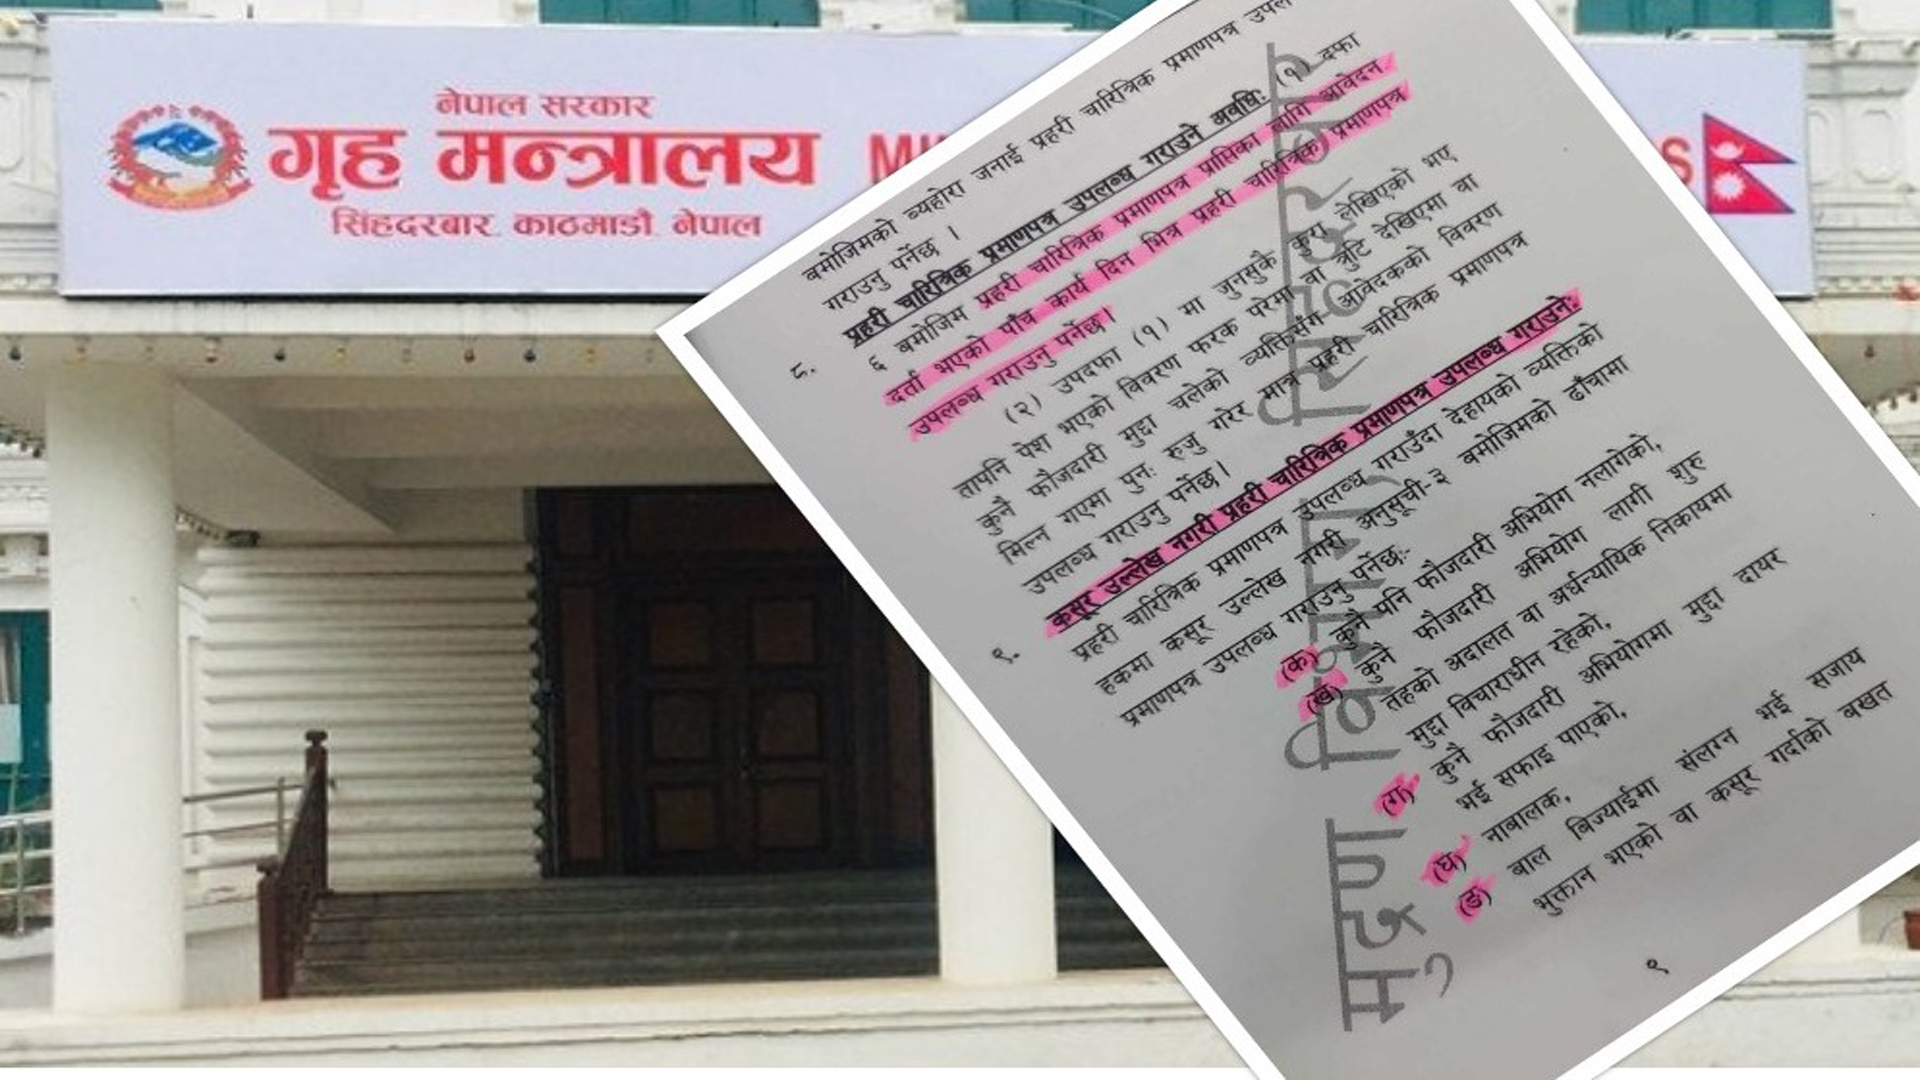 नेपाल सरकार
गृह मन्त्रालय
सिंहदरबार, काठमाडौं, नेपाल
बमोजिमको व्यहोरा जनाई प्रहरी चारित्रिक प्रमाणपत्र
गराउनु पर्नेछ ।
८. प्रहरी चारित्रिक प्रमाणपत्र उपलब्ध गराउने अवधिः (१) दफा
६ बमोजिम प्रहरी चारित्रिक प्रमाणपत्र प्राप्तिका लागि आवेदन
दर्ता भएको पाँच कार्य दिन भित्र प्रहरी चारित्रिक प्रमाणपत्र
उपलब्ध गराउनु पर्नेछ।
(२) उपदफा (१) मा जुनसुकै कुरा लेखिएको भए
तापनि पेश भएको विवरण फरक परेमा वा त्रुटि देखिएमा वा
कुनै फौजदारी मुद्दा चलेको व्यक्तिसँग आवेदकको विवरण
मिल्न गएमा पुनः रुजु गरेर मात्र प्रहरी चारित्रिक प्रमाणपत्र
उपलब्ध गराउनु पर्नेछ।
९. कसूर उल्लेख नगरी प्रहरी चारित्रिक प्रमाणपत्र उपलब्ध गराउनेः
प्रहरी चारित्रिक प्रमाणपत्र उपलब्ध गराउँदा देहायको व्यक्तिको
हकमा कसूर उल्लेख नगरी अनुसूची-३ बमोजिमको ढाँचामा
प्रमाणपत्र उपलब्ध गराउनु पर्नेछः-
(क) कुनै पनि फौजदारी अभियोग नलागेको,
(ख) कुनै फौजदारी अभियोग लागी शुरु
तहको अदालत वा अर्धन्यायिक निकायमा
मुद्दा विचाराधीन रहेको,
(ग) कुनै फौजदारी अभियोगमा मुद्दा दायर
भई सफाइ पाएको,
(घ) नाबालक,
(ङ) बाल बिज्याईमा संलग्न भई सजाय
भुक्तान भएको वा कसूर गर्दाको बखत
९
मुद्रण विभाग, सिंहदरबार